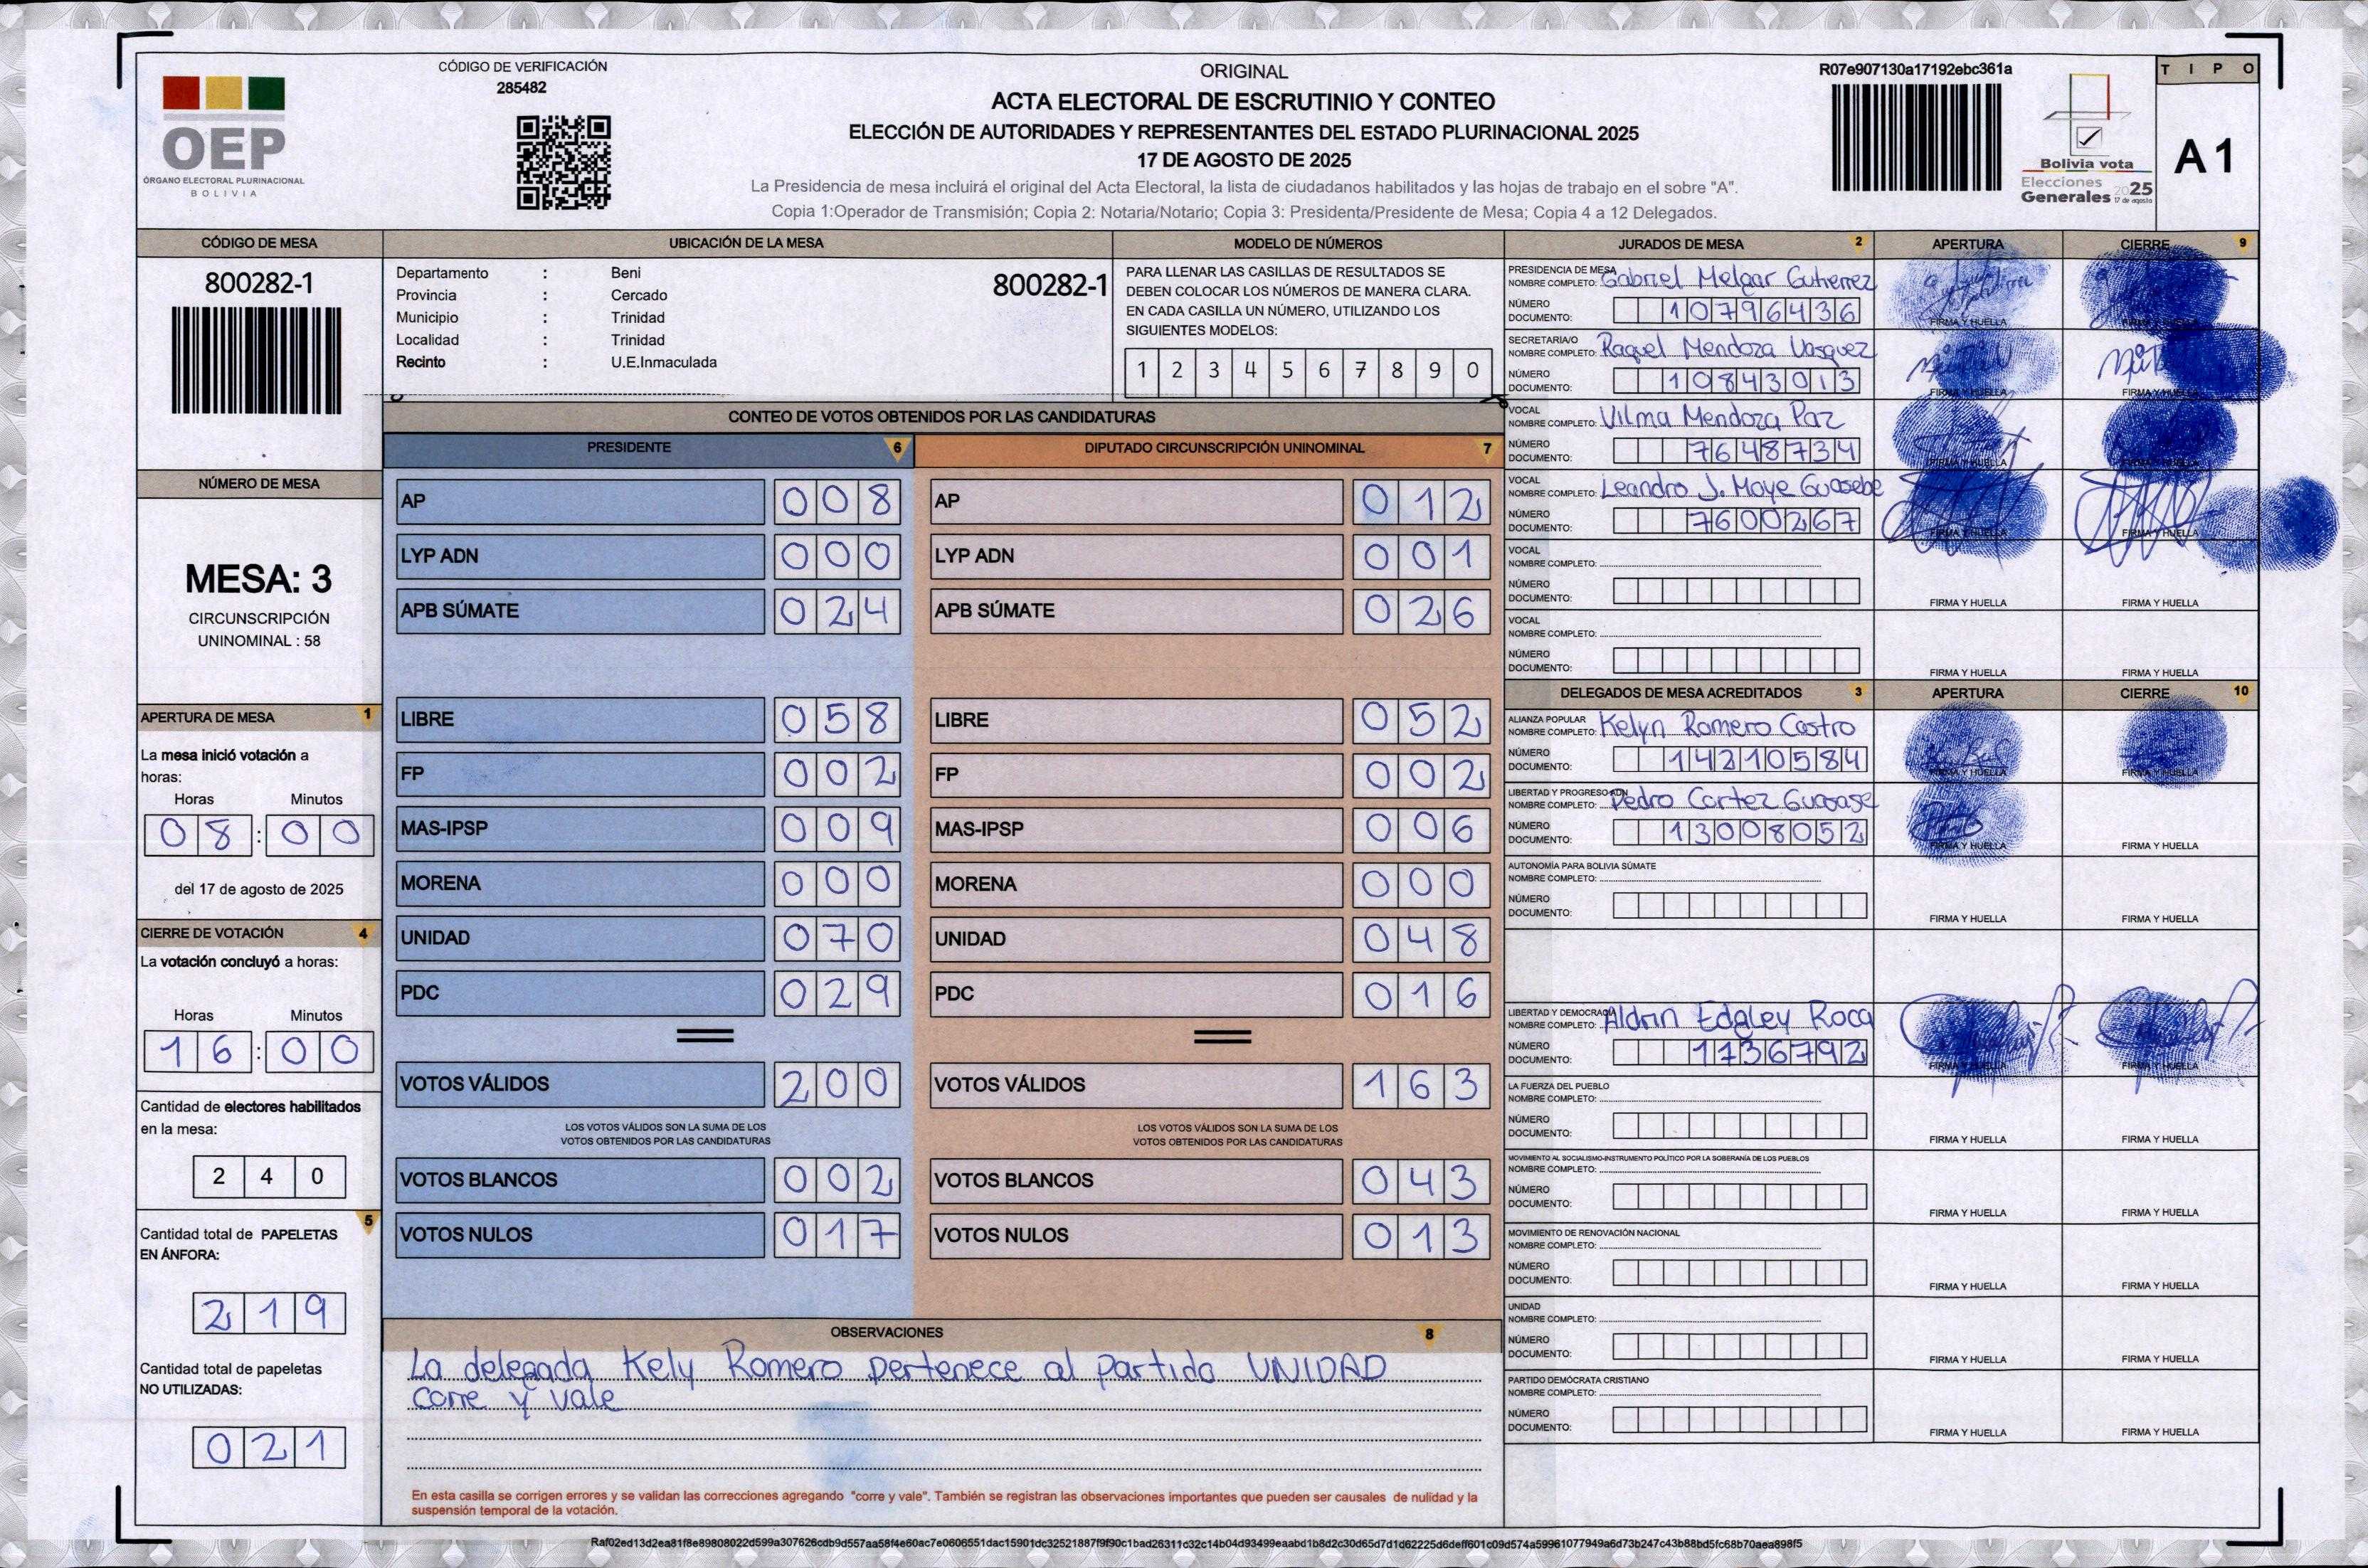 CÓDIGO DE VERIFICACIÓN
285482
OEP
ÓRGANO ELECTORAL PLURINACIONAL
BOLIVIA
ORIGINAL
ACTA ELECTORAL DE ESCRUTINIO Y CONTEO
ELECCIÓN DE AUTORIDADES Y REPRESENTANTES DEL ESTADO PLURINACIONAL 2025
17 DE AGOSTO DE 2025
La Presidencia de mesa incluirá el original del Acta Electoral, la lista de ciudadanos habilitados y las hojas de trabajo en el sobre "A".
Copia 1:Operador de Transmisión; Copia 2: Notaria/Notario; Copia 3: Presidenta/Presidente de Mesa; Copia 4 a 12 Delegados.
R07e907130a17192ebc361a
Bolivia vota
Elecciones
Generales 2025
17 de agosto
TIPO
A1
CÓDIGO DE MESA
800282-1
UBICACIÓN DE LA MESA
Departamento : Beni
Provincia : Cercado
Municipio : Trinidad
Localidad : Trinidad
Recinto : U.E.Inmaculada
800282-1
MODELO DE NÚMEROS
PARA LLENAR LAS CASILLAS DE RESULTADOS SE
DEBEN COLOCAR LOS NÚMEROS DE MANERA CLARA.
EN CADA CASILLA UN NÚMERO, UTILIZANDO LOS
SIGUIENTES MODELOS:
1 2 3 4 5 6 7 8 9 0
NÚMERO DE MESA
MESA: 3
CIRCUNSCRIPCIÓN
UNINOMINAL : 58
APERTURA DE MESA 1
La mesa inició votación a
horas:
Horas Minutos
08:00
del 17 de agosto de 2025
CIERRE DE VOTACIÓN 4
La votación concluyó a horas:
Horas Minutos
16:00
Cantidad de electores habilitados
en la mesa:
240
5
Cantidad total de PAPELETAS
EN ÁNFORA:
219
Cantidad total de papeletas
NO UTILIZADAS:
021
CONTEO DE VOTOS OBTENIDOS POR LAS CANDIDATURAS
PRESIDENTE 6 DIPUTADO CIRCUNSCRIPCIÓN UNINOMINAL 7
AP 008 AP 012
LYP ADN 000 LYP ADN 001
APB SÚMATE 024 APB SÚMATE 026
LIBRE 058 LIBRE 052
FP 002 FP 002
MAS-IPSP 009 MAS-IPSP 006
MORENA 000 MORENA 000
UNIDAD 070 UNIDAD 048
PDC 029 PDC 016
VOTOS VÁLIDOS 200 VOTOS VÁLIDOS 163
LOS VOTOS VÁLIDOS SON LA SUMA DE LOS
VOTOS OBTENIDOS POR LAS CANDIDATURAS
LOS VOTOS VÁLIDOS SON LA SUMA DE LOS
VOTOS OBTENIDOS POR LAS CANDIDATURAS
VOTOS BLANCOS 002 VOTOS BLANCOS 043
VOTOS NULOS 017 VOTOS NULOS 013
OBSERVACIONES 8
La delegada Kely Romero pertenece al partido UNIDAD
corre y vale
En esta casilla se corrigen errores y se validan las correcciones agregando "corre y vale". También se registran las observaciones importantes que pueden ser causales de nulidad y la
suspensión temporal de la votación.
JURADOS DE MESA 2 APERTURA CIERRE 9
PRESIDENCIA DE MESA
NOMBRE COMPLETO: Gabriel Melgar Gutierrez
NÚMERO
DOCUMENTO: 10796436 FIRMA Y HUELLA FIRMA Y HUELLA
SECRETARIA/O
NOMBRE COMPLETO: Raquel Mendoza Vasquez
NÚMERO
DOCUMENTO: 10843013 FIRMA Y HUELLA FIRMA Y HUELLA
VOCAL
NOMBRE COMPLETO: Vilma Mendoza Paz
NÚMERO
DOCUMENTO: 7648734 FIRMA Y HUELLA FIRMA Y HUELLA
VOCAL
NOMBRE COMPLETO: Leandro J. Moye Guasebe
NÚMERO
DOCUMENTO: 7600267 FIRMA Y HUELLA FIRMA Y HUELLA
VOCAL
NOMBRE COMPLETO:
NÚMERO
DOCUMENTO: FIRMA Y HUELLA FIRMA Y HUELLA
VOCAL
NOMBRE COMPLETO:
NÚMERO
DOCUMENTO: FIRMA Y HUELLA FIRMA Y HUELLA
DELEGADOS DE MESA ACREDITADOS 3 APERTURA CIERRE 10
ALIANZA POPULAR
NOMBRE COMPLETO: Kelyn Romero Castro
NÚMERO
DOCUMENTO: 14210584 FIRMA Y HUELLA FIRMA Y HUELLA
LIBERTAD Y PROGRESO ADN
NOMBRE COMPLETO: Pedro Cortez Guasase
NÚMERO
DOCUMENTO: 13008052 FIRMA Y HUELLA FIRMA Y HUELLA
AUTONOMÍA PARA BOLIVIA SÚMATE
NOMBRE COMPLETO:
NÚMERO
DOCUMENTO: FIRMA Y HUELLA FIRMA Y HUELLA
LIBERTAD Y DEMOCRACIA
NOMBRE COMPLETO: Aldrin Edgley Roca
NÚMERO
DOCUMENTO: 1736792 FIRMA Y HUELLA FIRMA Y HUELLA
LA FUERZA DEL PUEBLO
NOMBRE COMPLETO:
NÚMERO
DOCUMENTO: FIRMA Y HUELLA FIRMA Y HUELLA
MOVIMIENTO AL SOCIALISMO-INSTRUMENTO POLÍTICO POR LA SOBERANÍA DE LOS PUEBLOS
NOMBRE COMPLETO:
NÚMERO
DOCUMENTO: FIRMA Y HUELLA FIRMA Y HUELLA
MOVIMIENTO DE RENOVACIÓN NACIONAL
NOMBRE COMPLETO:
NÚMERO
DOCUMENTO: FIRMA Y HUELLA FIRMA Y HUELLA
UNIDAD
NOMBRE COMPLETO:
NÚMERO
DOCUMENTO: FIRMA Y HUELLA FIRMA Y HUELLA
PARTIDO DEMÓCRATA CRISTIANO
NOMBRE COMPLETO:
NÚMERO
DOCUMENTO: FIRMA Y HUELLA FIRMA Y HUELLA